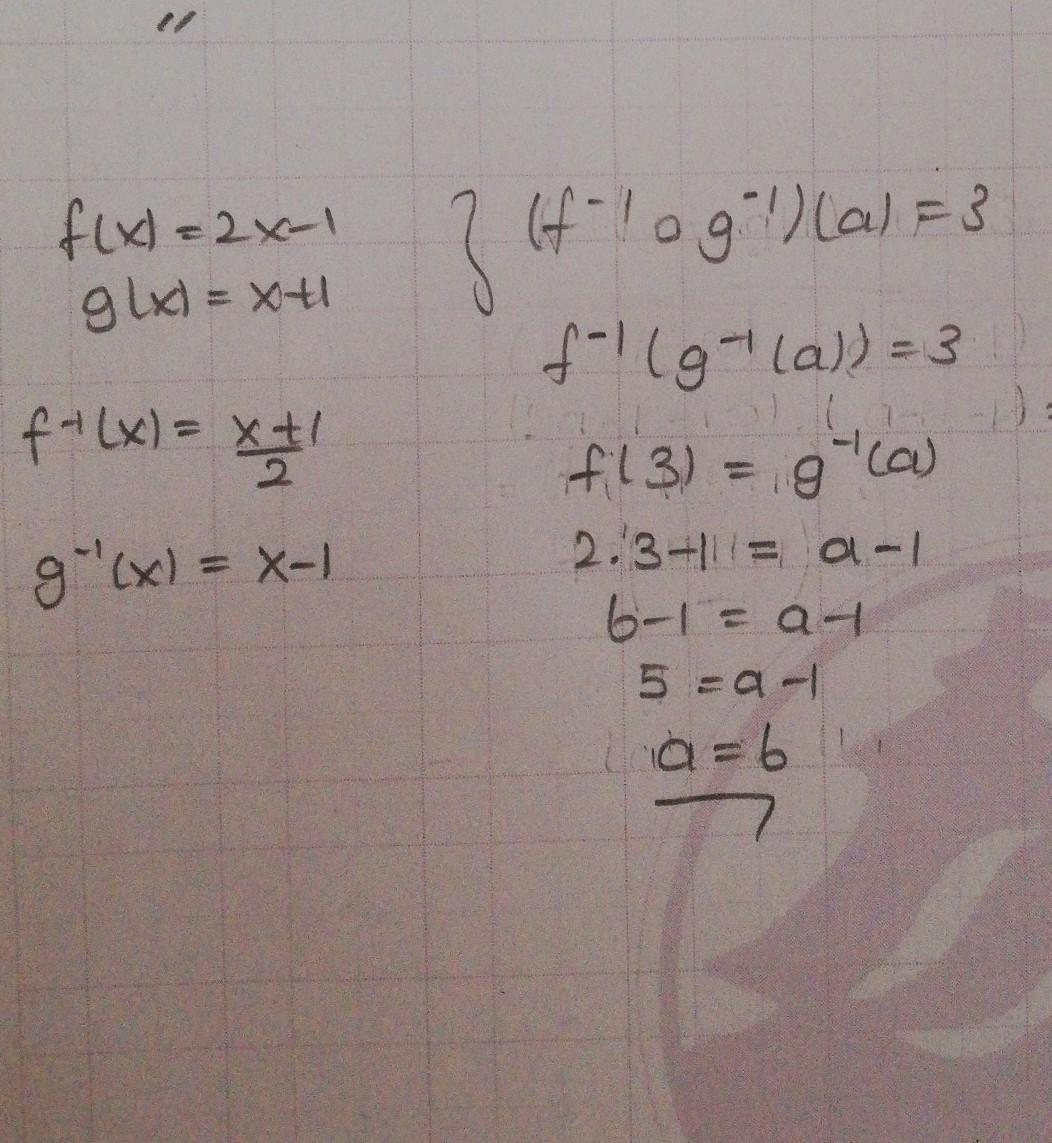 "
f(x) = 2x-1
g(x) = x+1
f⁻¹(x) = x+1/2
g⁻¹(x) = x-1
} (f⁻¹ o g⁻¹)(a) = 3
f⁻¹(g⁻¹(a)) = 3
f(3) = g⁻¹(a)
2.3-1 = a-1
6-1 = a-1
5 = a-1
a = 6